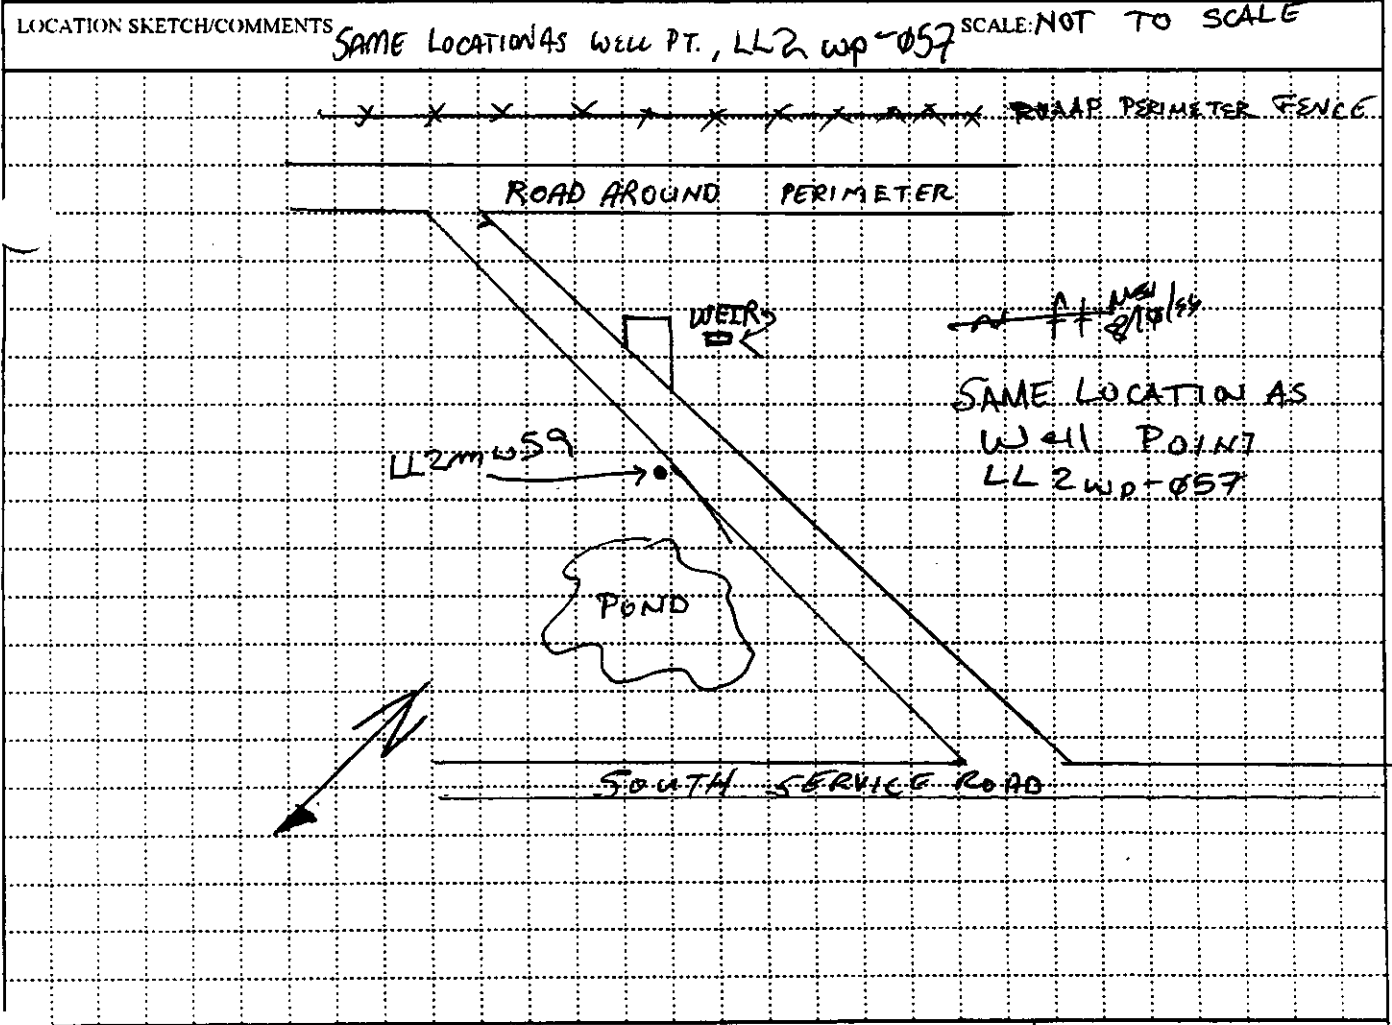 LOCATION SKETCH/COMMENTS SAME LOCATION AS WELL PT., LL2 wp-Ø57 SCALE: NOT TO SCALE
RVAAP PERIMETER FENCE
ROAD AROUND PERIMETER
WEIR
SAME LOCATION AS
Well POINT
LL2wp-Ø57
LL2mw59
POND
N
SOUTH SERVICE ROAD